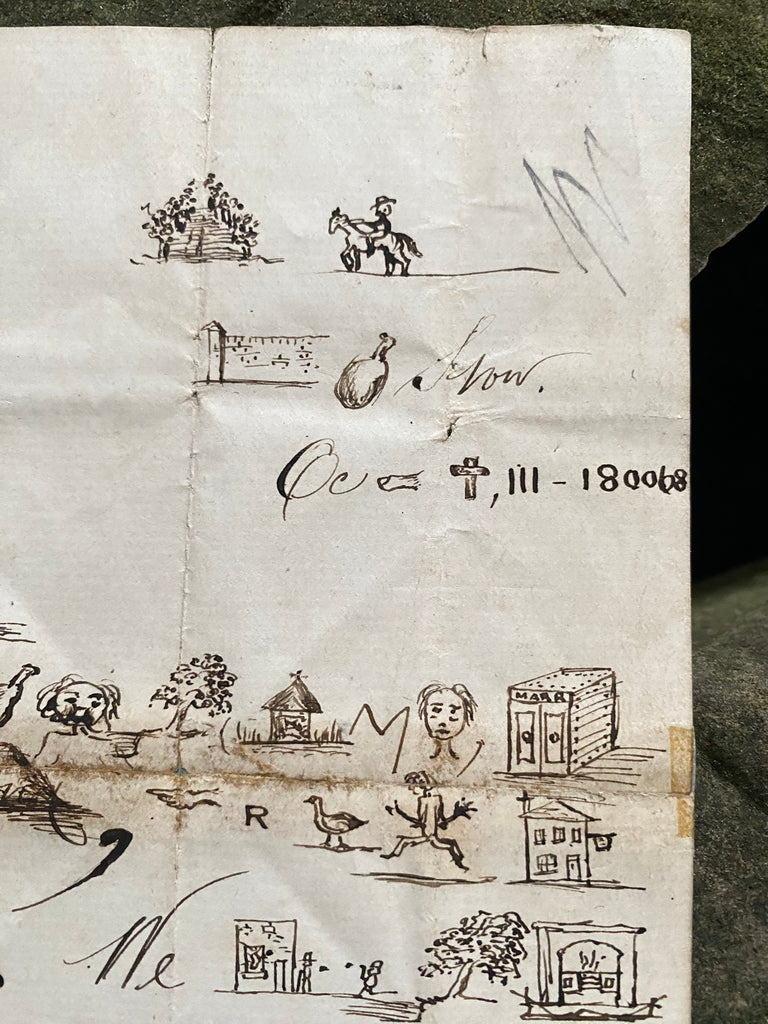 Stow.
Oc †, III - 180068
M MARR
R
We